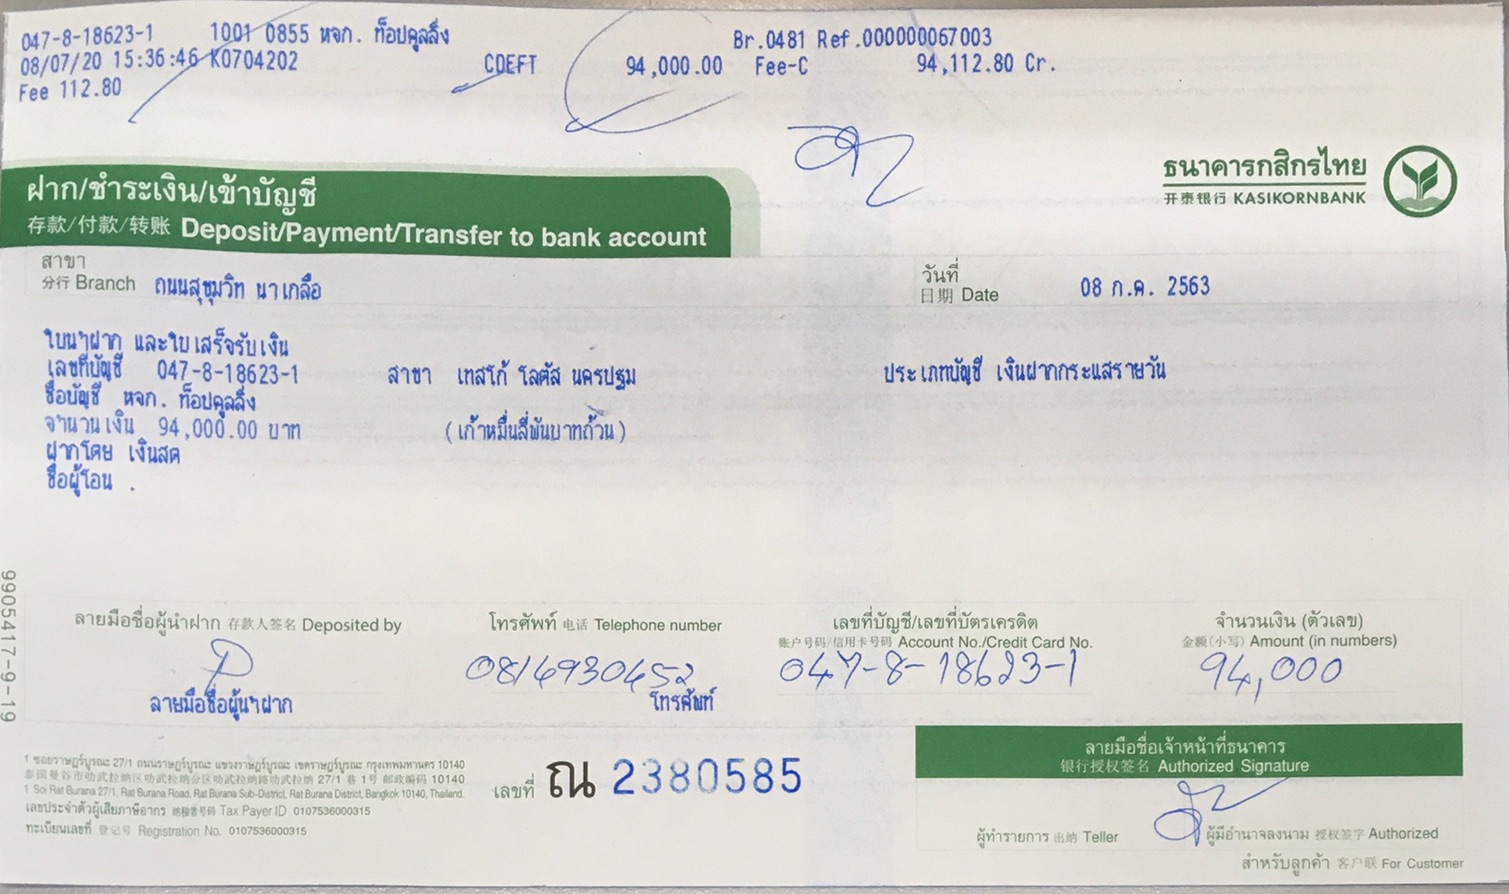 047-8-18623-1 1001 0855 หจก. ท็อปคูลลิ่ง Br.0481 Ref.000000067003
08/07/20 15:36:46 K0704202 CDEFT 94,000.00 Fee-C 94,112.80 Cr.
Fee 112.80
ธนาคารกสิกรไทย
开泰银行 KASIKORNBANK
ฝาก/ชำระเงิน/เข้าบัญชี
存款/付款/转账 Deposit/Payment/Transfer to bank account
สาขา
分行 Branch ถนนสุขุมวิท นาเกลือ
วันที่
日期 Date 08 ก.ค. 2563
ใบนำฝาก และใบเสร็จรับเงิน
เลขที่บัญชี 047-8-18623-1 สาขา เทสโก้ โลตัส นครปฐม ประเภทบัญชี เงินฝากกระแสรายวัน
ชื่อบัญชี หจก. ท็อปคูลลิ่ง
จำนวนเงิน 94,000.00 บาท (เก้าหมื่นสี่พันบาทถ้วน)
ฝากโดย เงินสด
ชื่อผู้โอน .
9905417-9-19
ลายมือชื่อผู้นำฝาก 存款人签名 Deposited by
ลายมือชื่อผู้นำฝาก
โทรศัพท์ 电话 Telephone number
0816930652
โทรศัพท์
เลขที่บัญชี/เลขที่บัตรเครดิต
账户号码/信用卡号码 Account No./Credit Card No.
047-8-18623-1
จำนวนเงิน (ตัวเลข)
金额(小写) Amount (in numbers)
94,000
1 ซอยราษฎร์บูรณะ 27/1 ถนนราษฎร์บูรณะ แขวงราษฎร์บูรณะ เขตราษฎร์บูรณะ กรุงเทพมหานคร 10140
泰国曼谷市叻武拉纳区叻武拉纳分区叻武拉纳路叻武拉纳 27/1 巷 1 号 邮政编码 10140
1 Soi Rat Burana 27/1, Rat Burana Road, Rat Burana Sub-District, Rat Burana District, Bangkok 10140, Thailand.
เลขประจำตัวผู้เสียภาษีอากร 纳税者号码 Tax Payer ID 0107536000315
ทะเบียนเลขที่ 登记号 Registration No. 0107536000315
เลขที่ ณ 2380585
ลายมือชื่อเจ้าหน้าที่ธนาคาร
银行授权签名 Authorized Signature
ผู้ทำรายการ 出纳 Teller
ผู้มีอำนาจลงนาม 授权签字 Authorized
สำหรับลูกค้า 客户联 For Customer